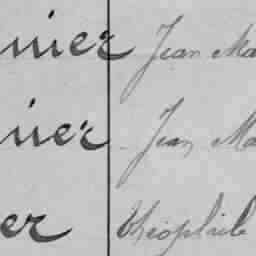 nier Jean Ma
nier Jean Ma
er Théophile